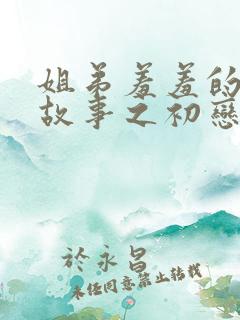 姐弟羞羞的
故事之初戀
於永昌
未經同意禁止轉載